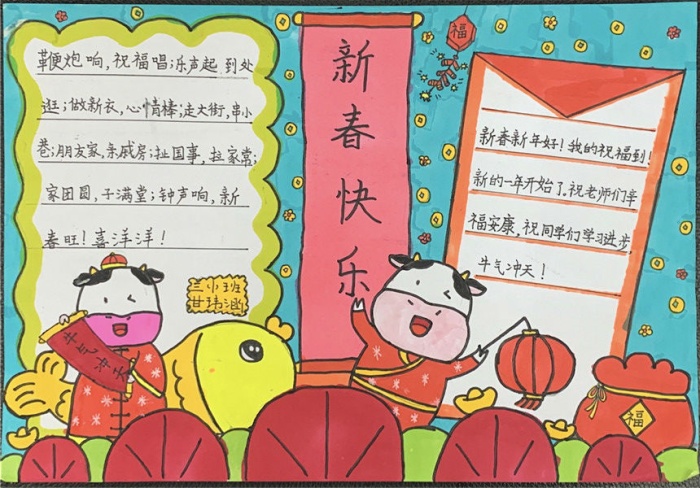 鞭炮响,祝福唱;乐声起 到处
逛;做新衣,心情棒;走大街,串小
巷;朋友家,亲戚房;扯国事,拉家常;
家团圆,子满堂;钟声响,新
春旺!喜洋洋!
新春快乐
福
新春新年好!我的祝福到!
新的一年开始了.祝老师们幸
福安康.祝同学们学习进步,
牛气冲天!
三小班
甘玮涵
牛气冲天
福